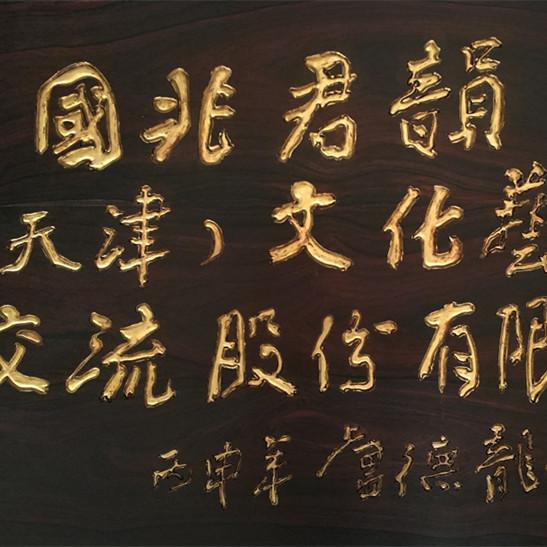 國兆君韻
天津）文化藝
交流股份有限
丙申年 德龍